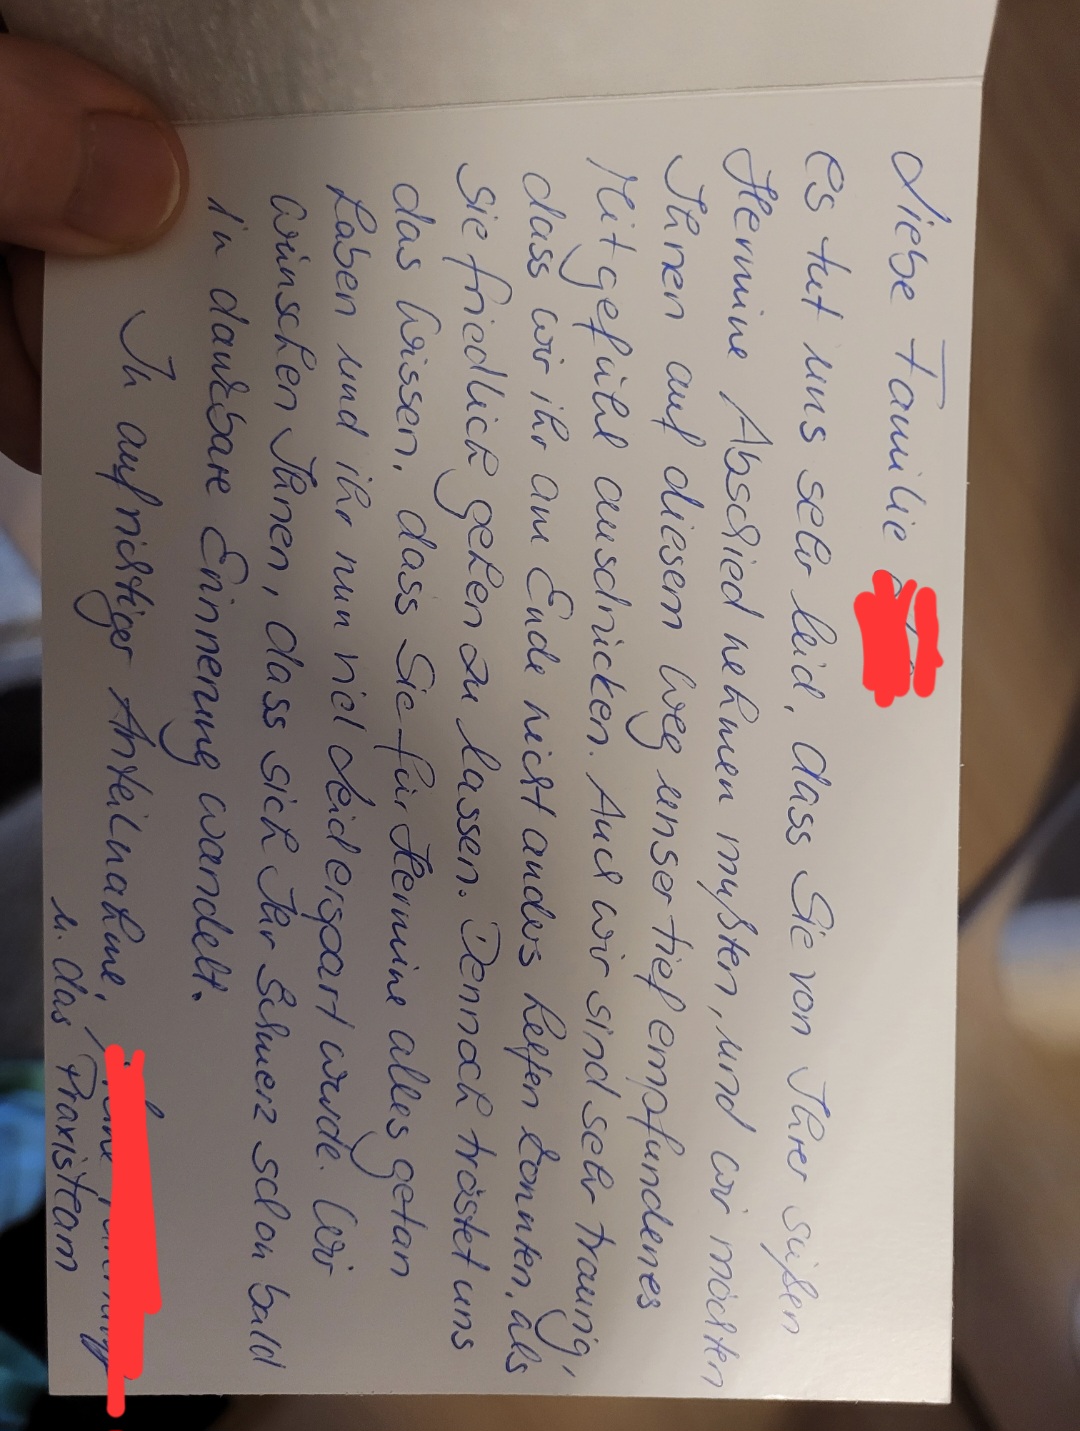 Liebe Familie
es tut uns sehr leid, dass Sie von Ihrer süßen
Hermine Abschied nehmen mußten, und wir möchten
Ihnen auf diesem Weg unser tief empfundenes
Mitgefühl ausdrücken. Auch wir sind sehr traurig,
dass wir ihr am Ende nicht anders helfen konnten, als
sie friedlich gehen zu lassen. Dennoch tröstet uns
das Wissen, dass Sie für Hermine alles getan
haben und ihr nun viel Leid erspart wurde. Wir
wünschen Ihnen, dass sich Ihr Schmerz schon bald
in dankbare Erinnerung wandelt.
In aufrichtiger Anteilnahme,
u. das Praxisteam